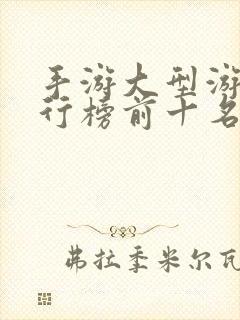 手游大型游
行榜前十名
弗拉季米尔瓦